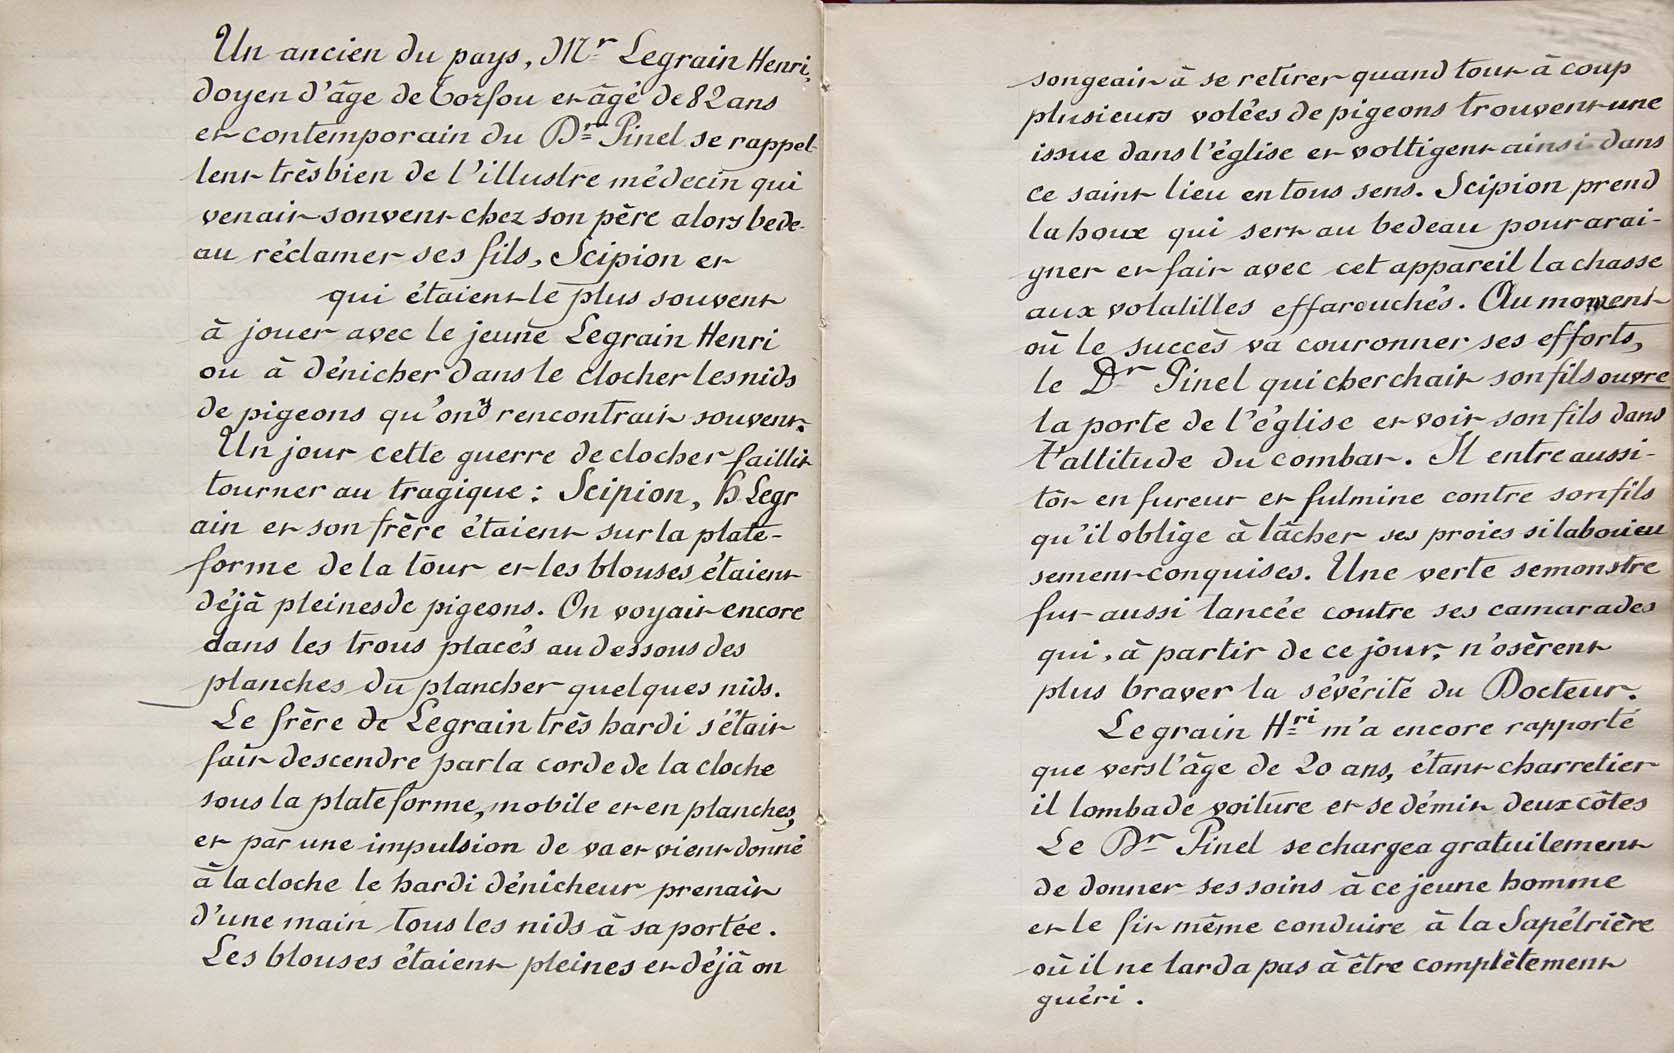 Un ancien du pays, Mr Legrain Henri,
doyen d'âge de Torfou et âgé de 82 ans
et contemporain du Dr Pinel se rappel-
lent très bien de l'illustre médecin qui
venait souvent chez son père alors bede-
au réclamer ses fils, Scipion et
qui étaient le plus souvent
à jouer avec le jeune Legrain Henri
ou à dénicher dans le clocher les nids
de pigeons qu'on y rencontrait souvent.
Un jour cette guerre de clocher faillit
tourner au tragique : Scipion, h Legr
ain et son frère étaient sur la plate-
forme de la tour et les blouses étaient
déjà pleines de pigeons. On voyait encore
dans les trous placés au dessous des
planches du plancher quelques nids.
Le frère de Legrain très hardi s'était
fait descendre par la corde de la cloche
sous la plateforme, mobile et en planches,
et par une impulsion de va et vient donné
à la cloche le hardi dénicheur prenait
d'une main tous les nids à sa portée.
Les blouses étaient pleines et déjà on
songeait à se retirer quand tout à coup
plusieurs volées de pigeons trouvent une
issue dans l'église et voltigent ainsi dans
ce saint lieu en tous sens. Scipion prend
la houx qui sert au bedeau pour arai-
gner et fait avec cet appareil la chasse
aux volatilles effarouchés. Au moment
où le succès va couronner ses efforts,
le Dr Pinel qui cherchait son fils ouvre
la porte de l'église et voit son fils dans
l'attitude du combat. Il entre aussi-
tôt en fureur et fulmine contre son fils
qu'il oblige à lâcher ses proies si laborieu
sement conquises. Une verte semonstre
fut aussi lancée contre ses camarades
qui, à partir de ce jour, n'osèrent
plus braver la sévérité du Docteur.
Legrain Hri m'a encore rapporté
que vers l'âge de 20 ans, étant charretier
il tomba de voiture et se démit deux côtes
Le Dr Pinel se chargea gratuitement
de donner ses soins à ce jeune homme
et le fit même conduire à la Sapétrière
où il ne tarda pas à être complètement
guéri.